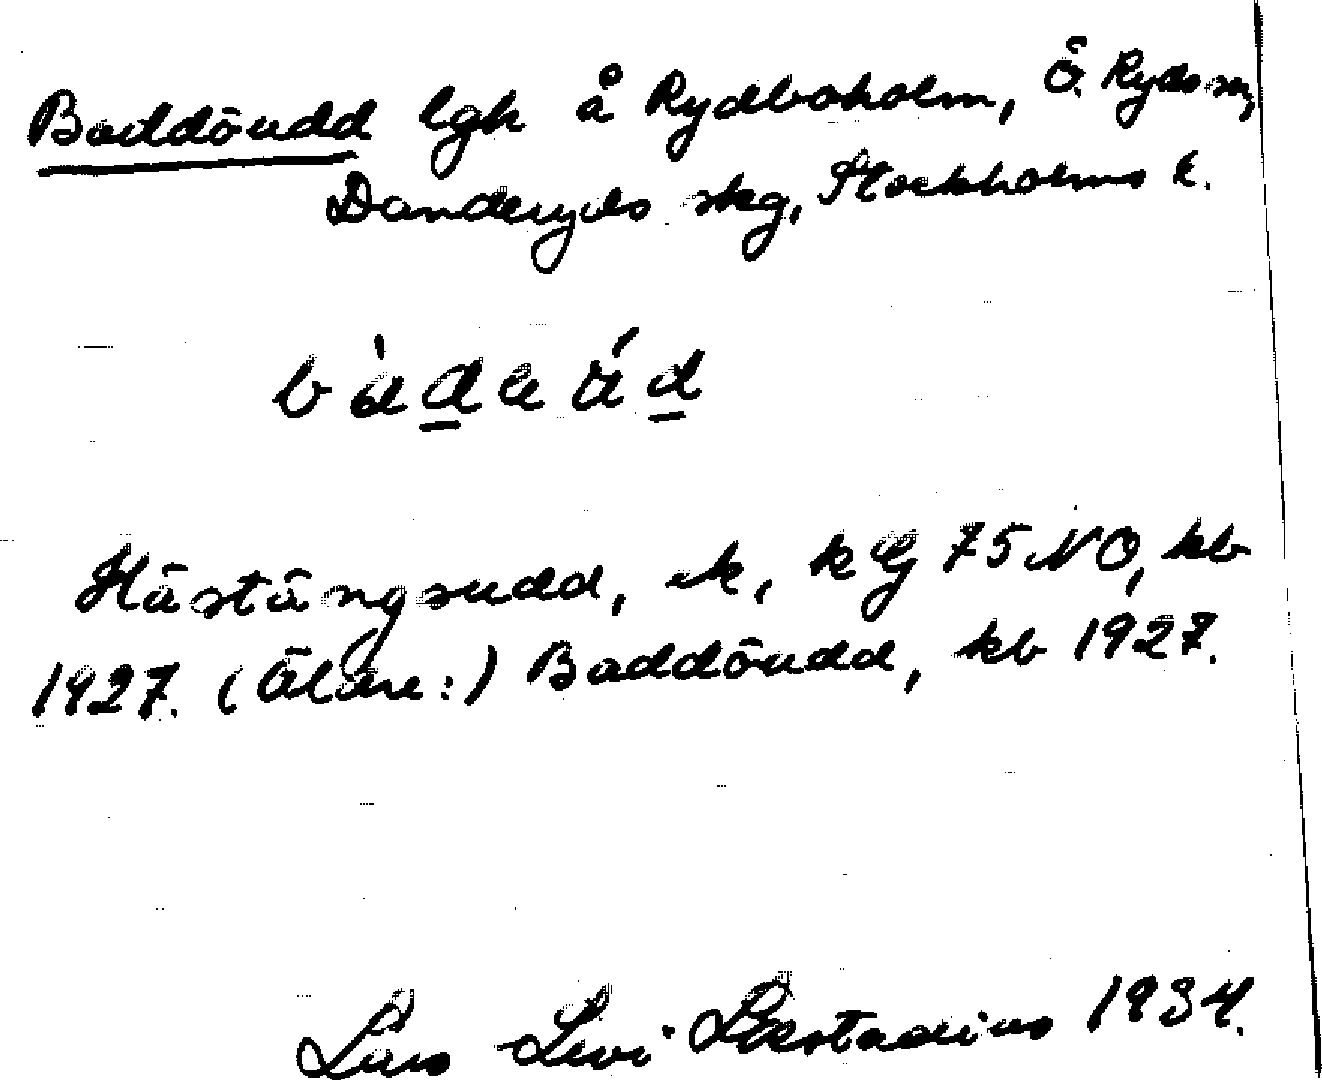 Baddöudd lgh å Rydboholm, Ö. Ryds sn,
Danderyds skg, Stockholms l.
Hästängsudd, ek, kG 75 NO, kb
1927. (Äldre:) Baddöudd, kb 1927.
Lars Levi Læstadius 1934.